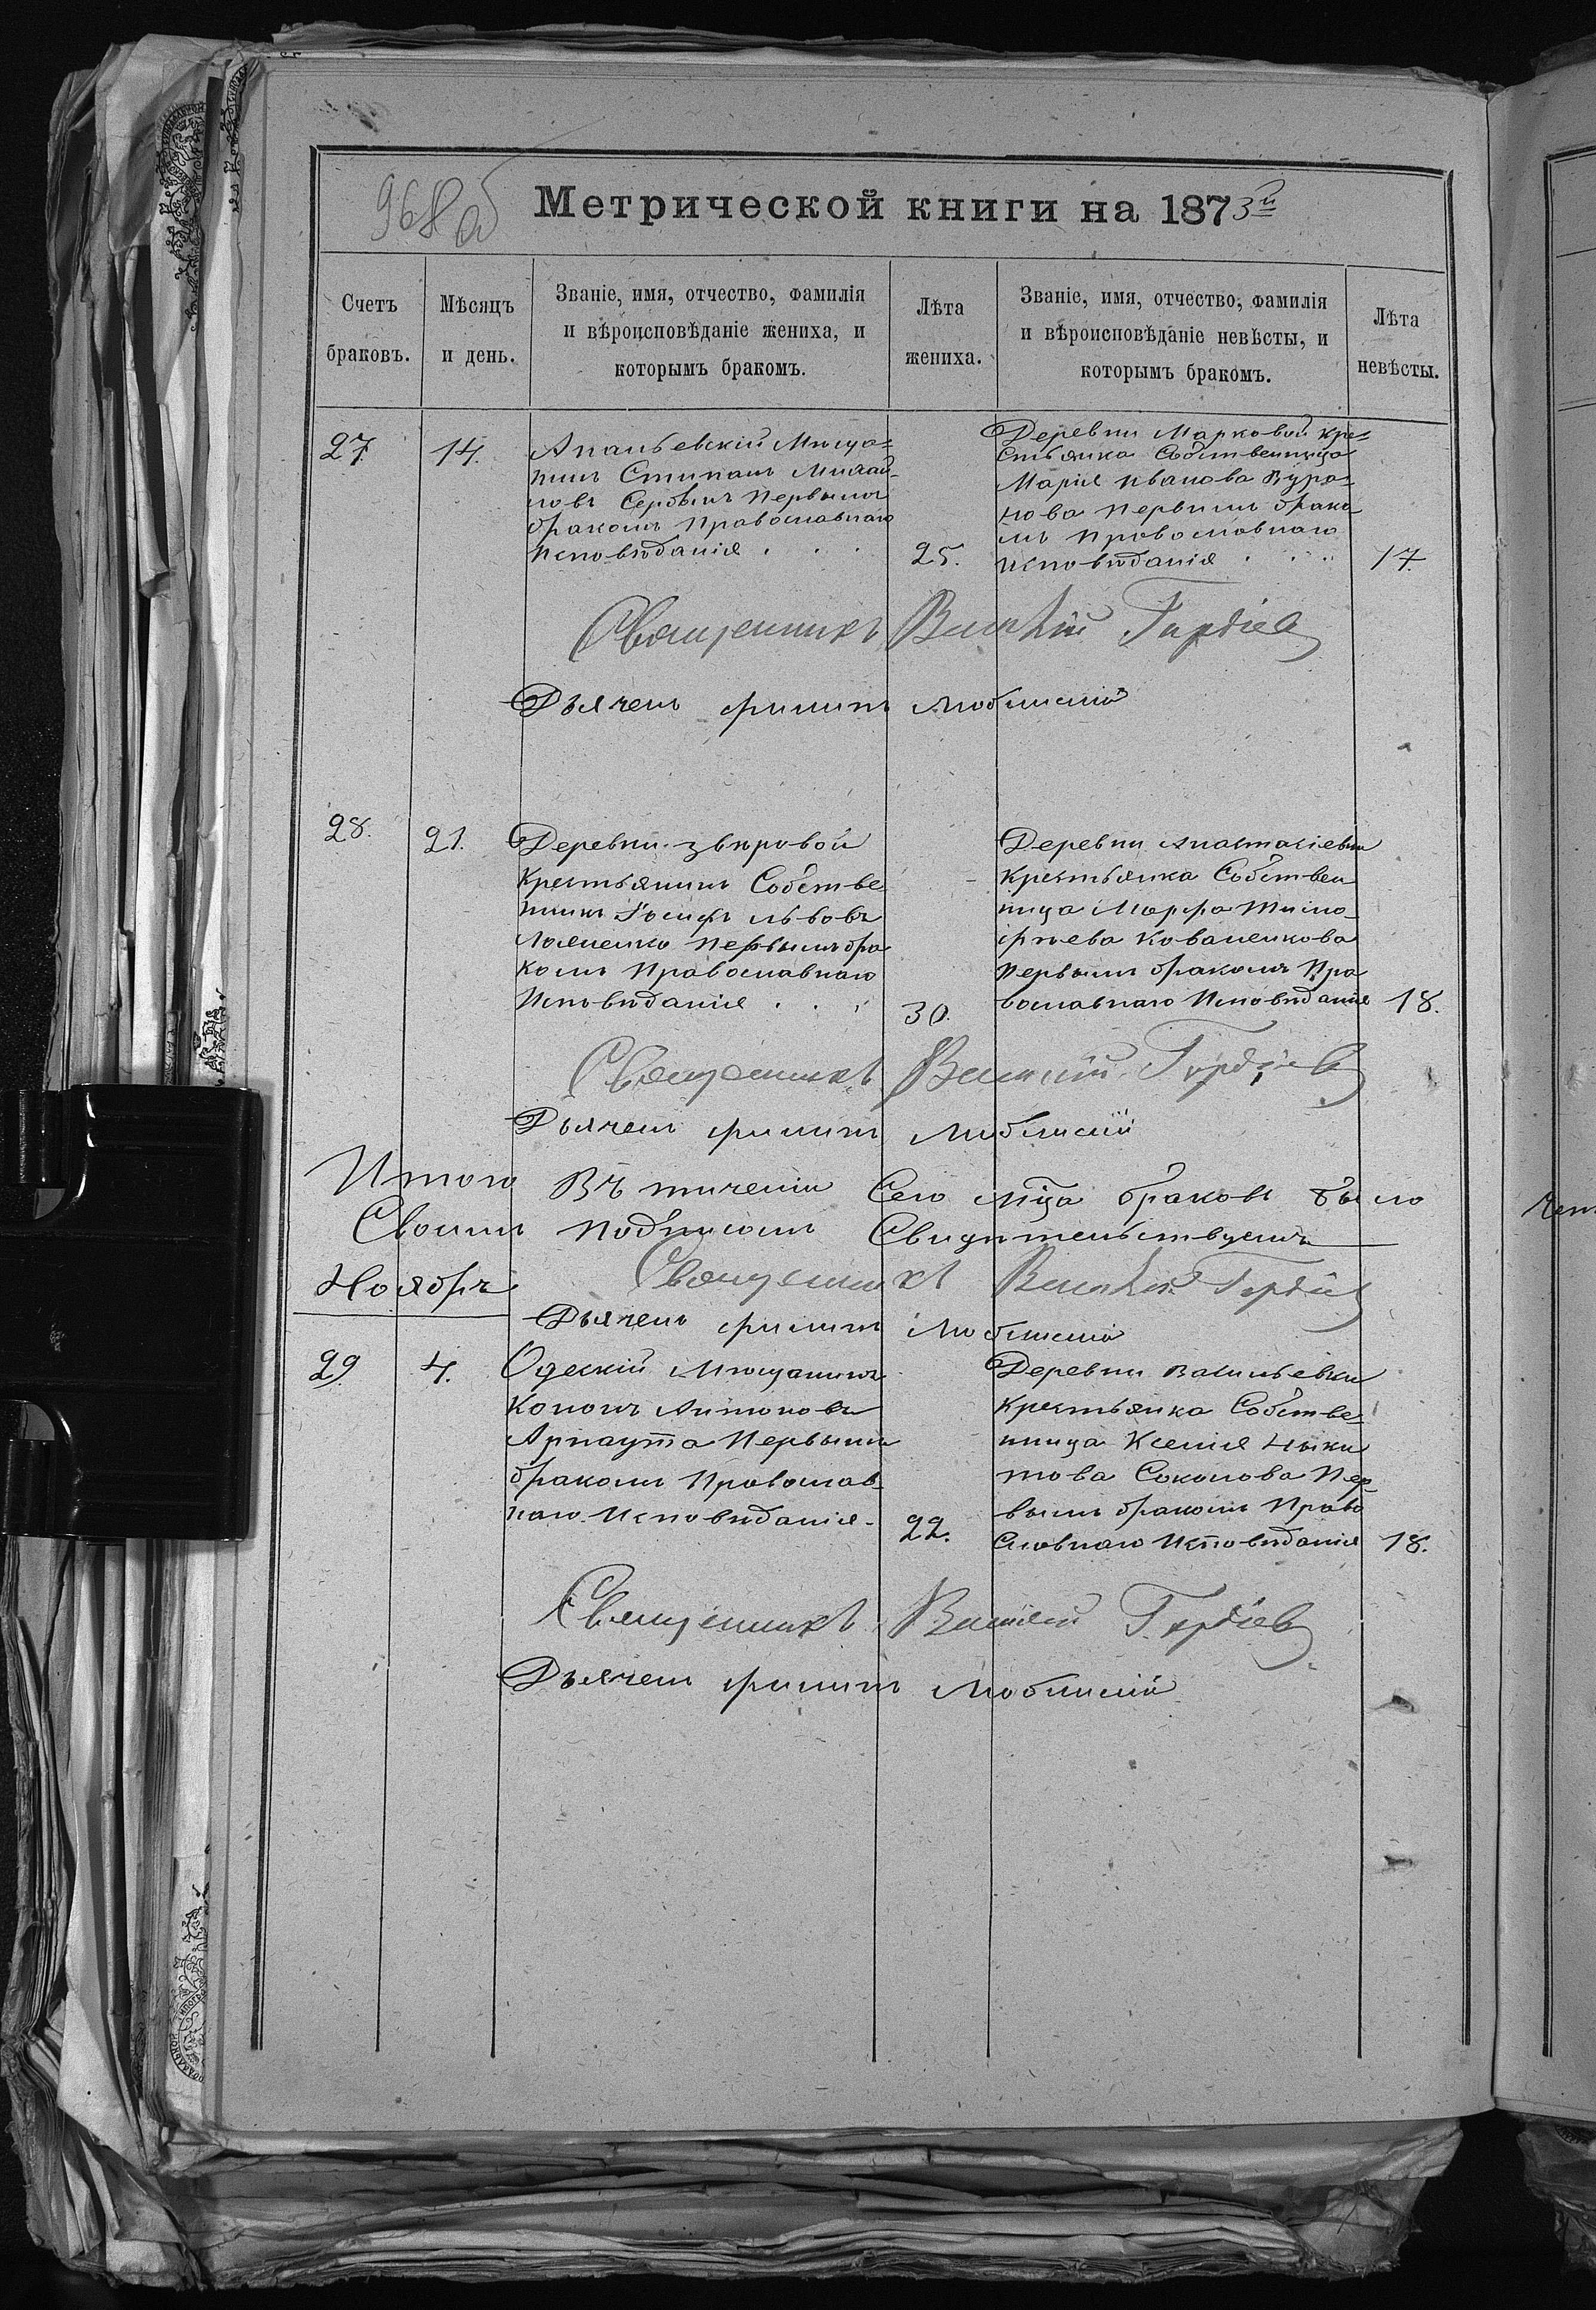 968 об
Метрической книги на 1873й
Счетъ браковъ.
Мѣсяцъ и день.
Званіе, имя, отчество, фамилія
и вѣроисповѣданіе жениха, и
которымъ бракомъ.
Лѣта жениха.
Званіе, имя, отчество, фамилія
и вѣроисповѣданіе невѣсты, и
которымъ бракомъ.
Лѣта невѣсты.
27. 14.
Ананьевскій Мѣща=
нинъ Стипанъ Михай-
ловъ Сербынъ Первымъ
бракомъ Православнаго
Исповѣданія . . .
25.
Деревни Марковой Кре=
стьянка Собственница
Марія Иванова
нова Первымъ брако-
мъ Православнаго
исповѣданія . . .
17.
Священникъ Василій Гордіев
Дьячекъ Филипъ Люблинскій
28. 21.
Деревни Звѣровой
Крестьянинъ Собстве
нникъ Іосифъ Львовъ
Первымъ бра
комъ Православнаго
Исповѣданія . . .
30.
Деревни Анастасіевки
Крестьянка Собствен
ница Марфа Тимо-
фѣева Коваленкова
Первымъ бракомъ Пра
вославнаго Исповѣданія
18.
Священникъ Василій Гордіев
Дьячекъ Филипъ Люблинскій
Итого Въ течении Сего мца браковъ было
Своимъ подписомъ Свидѣтельствуемъ
Священникъ Василій Гордіев
Ноябрь
Дьячекъ Филипъ Люблинскій
29 4.
Одескій Мѣщанинъ
Кононъ Антоновъ
Арнаута Первымъ
бракомъ Православ-
наго Исповѣданія-
22.
Деревни Васильевки
Крестьянка Собстве-
нница Ксенія Ныки
това Соколова Пер-
вымъ бракомъ Право
Славнаго Исповѣданія
18.
Священникъ Василій Гордіев
Дьячекъ Филипъ Люблинскій